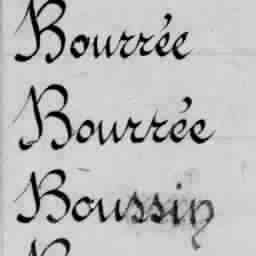 Bourrée
Bourrée
Boussin